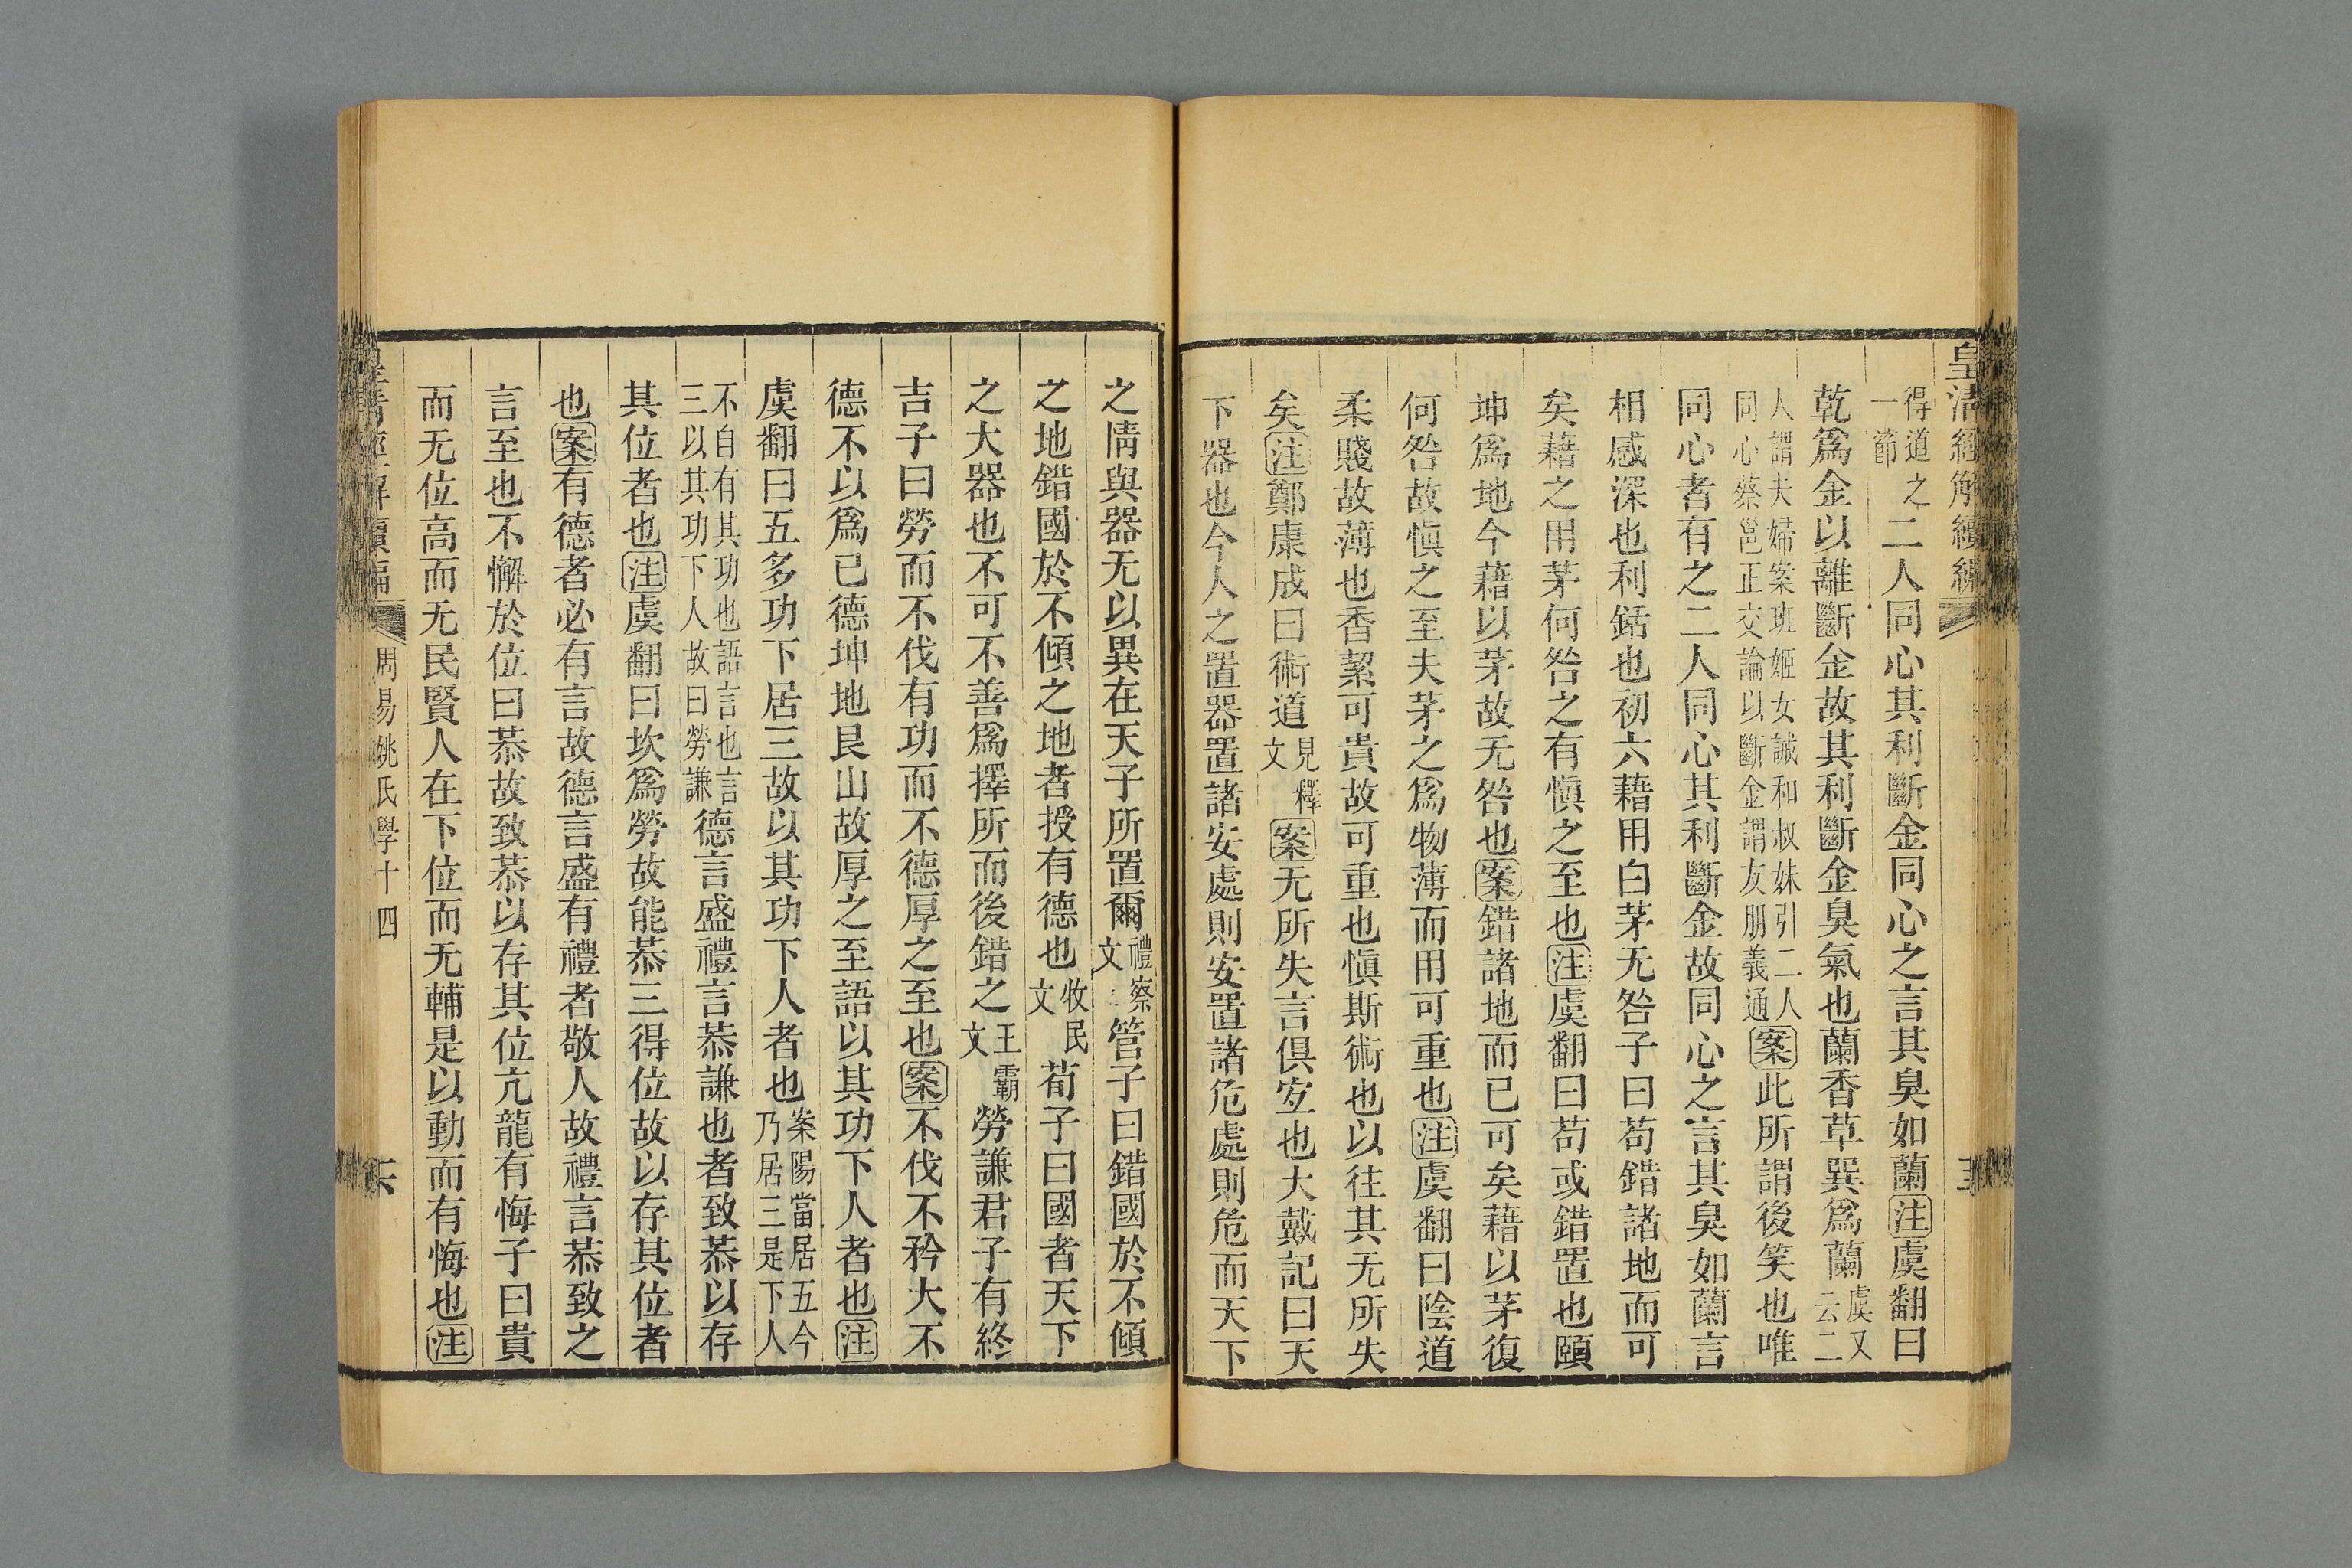 皇清經解續編
得道之
一節
二人同心其利斷金同心之言其臭如蘭注虞翻曰
乾爲金以離斷金故其利斷金臭氣也蘭香草巽爲蘭
虞又
云二
人謂夫婦案班姬女誡和叔妹引二人
同心蔡邕正交論以斷金謂友朋義通
案此所謂後笑也唯
同心者有之二人同心其利斷金故同心之言其臭如蘭言
相感深也利銛也初六藉用白茅无咎子曰苟錯諸地而可
矣藉之用茅何咎之有愼之至也注虞翻曰苟或錯置也頤
坤爲地今藉以茅故无咎也案錯諸地而已可矣藉以茅復
何咎故愼之至夫茅之爲物薄而用可重也注虞翻曰陰道
柔賤故薄也香絜可貴故可重也愼斯術也以往其无所失
矣注鄭康成曰術道
見釋
文
案无所失言俱安也大戴記曰天
下器也今人之置器置諸安處則安置諸危處則危而天下
之情與器无以異在天子所置爾
禮察
文
管子曰錯國於不傾
之地錯國於不傾之地者授有德也
牧民
文
荀子曰國者天下
之大器也不可不善爲擇所而後錯之
王霸
文
勞謙君子有終
吉子曰勞而不伐有功而不德厚之至也案不伐不矜大不
德不以爲已德坤地艮山故厚之至語以其功下人者也注
虞翻曰五多功下居三故以其功下人者也
案陽當居五今
乃居三是下人
不自有其功也語言也言
三以其功下人故曰勞謙
德言盛禮言恭謙也者致恭以存
其位者也注虞翻曰坎爲勞故能恭三得位故以存其位者
也案有德者必有言故德言盛有禮者敬人故禮言恭致之
言至也不懈於位曰恭故致恭以存其位亢龍有悔子曰貴
而无位高而无民賢人在下位而无輔是以動而有悔也注
周易姚氏學十四